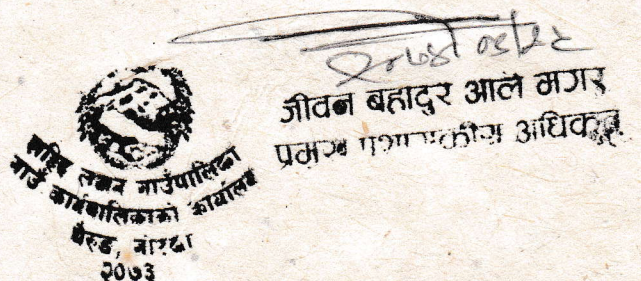 जीवन बहादुर आले मगर
प्रमुख प्रशासकीय अधिकृत
शहिद लखन गाउँपालिका
गाउँ कार्यपालिकाको कार्यालय
घैरुङ, गोरखा
२०७३